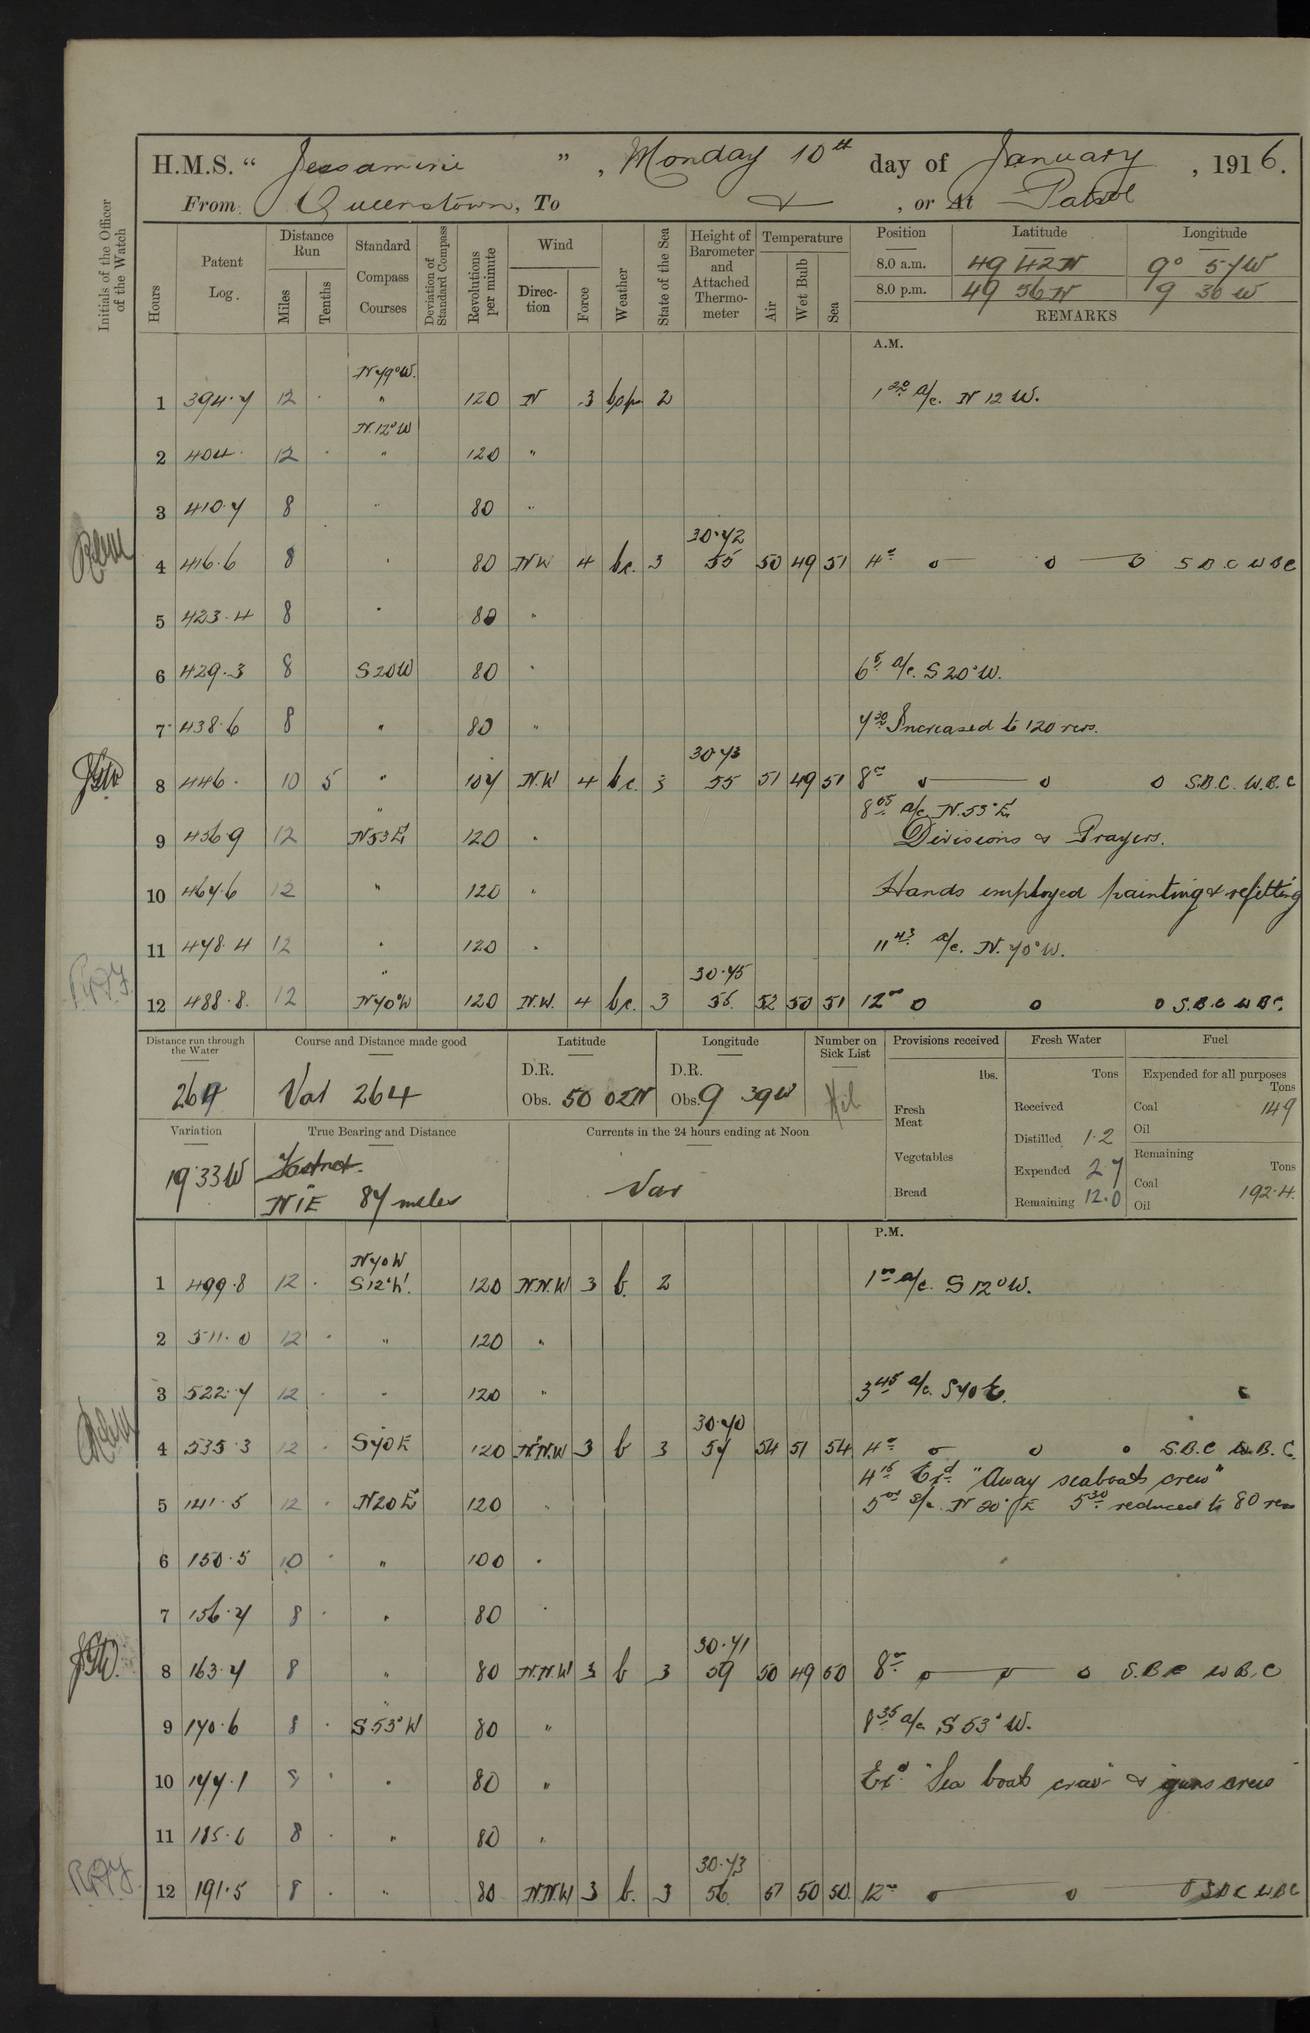 H.M.S. "Jessamine", Monday 10th day of January, 1916.
From Queenstown, To & , or At Patrol
Initials of the Officer of the Watch
Hours
Patent Log.
Distance Run
Miles
Tenths
Standard Compass Courses
Deviation of Standard Compass
Revolutions per minute
Wind
Direction
Force
Weather
State of the Sea
Height of Barometer and Attached Thermometer
Temperature
Air
Wet Bulb
Sea
Position Latitude Longitude
8.0 a.m. 49 42 N 9° 57 W
8.0 p.m. 49 56 N 9 36 W
REMARKS
A.M.
N 79° W.
1 394.7 12 . " 120 N 3 bcp 2 1 20 a/c. N 12 W.
N.12°W
2 404. 12 . " 120 "
3 410.7 8 " 80 "
30.72
4 416.6 8 " 80 NW 4 bc. 3 55 50 49 51 4 00 o o o S.B.C W B C
5 423.4 8 " 80 "
6 429.3 8 S20W 80 " 6 5 a/c. S 20° W.
7 438.6 8 " 80 " 7 30 Increased to 120 revs.
30.73
8 446. 10 5 " 107 N.W 4 bc. 3 55 51 49 51 8 00 o o o S.B.C. W.B.C
" 8 05 a/c N.53°E
9 456.9 12 N53E 120 " Divisions & Prayers.
10 467.6 12 " 120 " Hands employed painting & refitting
11 478.4 12 " 120 " 11 43 a/c. N. 70° W.
" 30.75
12 488.8. 12 N70°W 120 N.W. 4 bc. 3 56 52 50 51 12 00 o o o S.B.C W B C.
Distance run through the Water
264
Course and Distance made good
Var 264
Latitude
D.R.
Obs. 50 02N
Longitude
D.R.
Obs. 9 39W
Number on Sick List
Nil
Provisions received
lbs.
Fresh Meat
Vegetables
Bread
Fresh Water
Tons
Received
Distilled 1.2
Expended 2.7
Remaining 12.0
Fuel
Expended for all purposes
Tons
Coal 149
Oil
Remaining
Tons
Coal 192.4.
Oil
Variation
19.33W
True Bearing and Distance
Fastnet.
N 1 E 87 miles
Currents in the 24 hours ending at Noon
Var
P.M.
N70W
1 499.8 12 . S12°W. 120 N.N.W 3 b. 2 1 00 a/c. S 12° W.
2 511.0 12 . " 120 "
3 522.7 12 . " 120 " 3 45 a/c. S 70 E.
30.70
4 535.3 12 . S70E 120 N.N.W 3 b 3 57 54 51 54 4 00 o o o S.B.C W.B.C.
4 15 Exd "Away seaboats crew"
5 141.5 12 . N20E 120 " 5 00 a/c. N 20° E 5 30 reduced to 80 revs
6 150.5 10 . " 100 "
7 156.7 8 . " 80 "
30.71
8 163.7 8 " 80 N.N.W 3 b 3 59 50 49 50 8 00 o o o S.B.C W B.C
"
9 170.6 8 . S 53° W 80 " 8 35 a/c S 53° W.
10 177.1 8 . " 80 " Exd "Sea boats crew" & guns crew
11 185.6 8 . " 80 "
30.73
12 191.5 8 . " 80 N.N.W 3 b. 3 56 51 50 50. 12 00 o o o S B C W B C